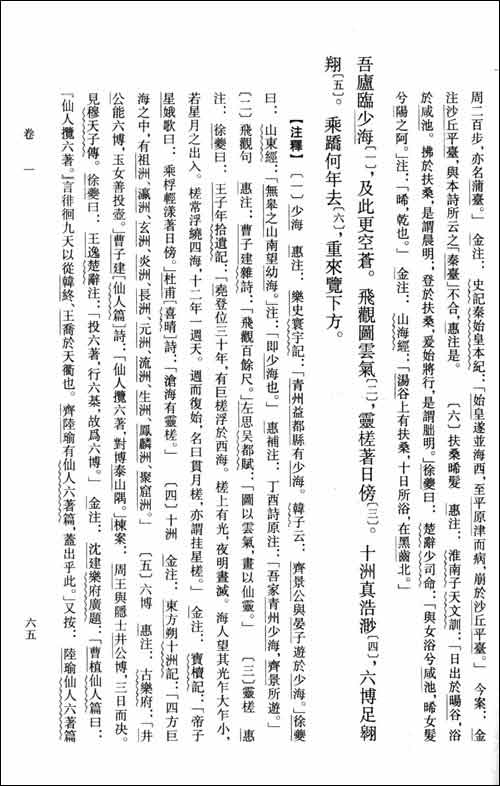 周二百步，亦名蒲臺。」　金注：史記秦始皇本紀：「始皇遂並海西，至平原津而病，崩於沙丘平臺。」　今案：金
注沙丘平臺，與本詩所云之「秦臺」不合，惠注是。　〔六〕扶桑晞髮　惠注：淮南子天文訓：「日出於暘谷，浴
於咸池。拂於扶桑，是謂晨明。登於扶桑，爰始將行，是謂朏明。」徐夔曰：楚辭少司命：「與女浴兮咸池，晞女髮
兮陽之阿。」注：「晞，乾也。」　金注：山海經：「湯谷上有扶桑，十日所浴，在黑齒北。」
吾廬臨少海〔一〕，及此更空蒼。飛觀圖雲氣〔二〕，靈槎著日傍〔三〕。十洲真浩渺〔四〕，六博足翱
翔〔五〕。乘蹻何年去〔六〕，重來覽下方。
【注釋】〔一〕少海　惠注：樂史寰宇記：「青州益都縣有少海。韓子云：齊景公與晏子遊於少海。」徐夔
曰：山東經：「無皋之山南望幼海。」注：「即少海也。」　惠補注：丁酉詩原注：「吾家青州少海，齊景所遊。」
〔二〕飛觀句　惠注：曹子建雜詩：「飛觀百餘尺。」左思吳都賦：「圖以雲氣，畫以仙靈。」　〔三〕靈槎　惠
注：徐夔曰：王子年拾遺記：「堯登位三十年，有巨槎浮於西海。槎上有光，夜明晝滅。海人望其光乍大乍小，
若星月之出入。槎常浮繞四海，十二年一週天。週而復始，名曰貫月槎，亦謂挂星槎。」　金注：寶櫝記：「帝子
星娥歌曰：乘桴輕漾著日傍。」杜甫〔喜晴〕詩：「滄海有靈槎。」　〔四〕十洲　金注：東方朔十洲記：「四方巨
海之中，有祖洲、瀛洲、玄洲、炎洲、長洲、元洲、流洲、生洲、鳳麟洲、聚窟洲。」　〔五〕六博　惠注：古樂府：「井
公能六博，玉女善投壺。」曹子建〔仙人篇〕詩：「仙人攬六著，對博泰山隅。」棟案：周王與隱士井公博，三日而決。
見穆天子傳。徐夔曰：王逸楚辭注：「投六著，行六棊，故爲六博。」　金注：沈建樂府廣題：「曹植仙人篇曰：
『仙人攬六著。』言徘徊九天以從韓終、王喬於天衢也。齊陸瑜有仙人六著篇，蓋出乎此。」又按：陸瑜仙人六著篇
卷一
六五